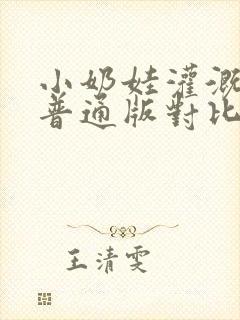 小奶娃灌溉
普通版對比
王清雯